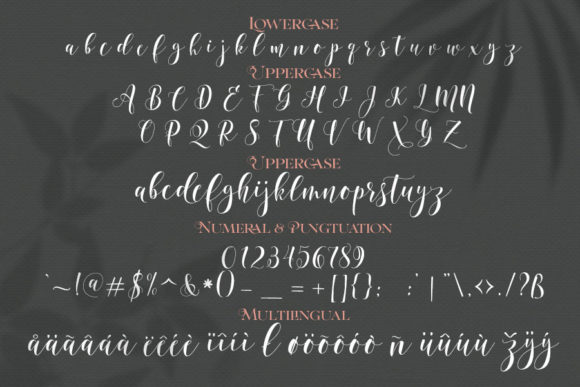 Lowercase
a b c d e f g h i j k l m n o p q r s t u v w x y z
Uppercase
A B C D E F G H I J K L M N
O P Q R S T U V W X Y Z
Uppercase
abcdefghijklmnoprstuyz
Numeral & Pungtuation
0123456789
`~!@#$%^&*()-_=+[]{};:'|"\,<>./?ß
Multilingual
åäãâáà ëêéè ïîíì ł øöõôóò ñ üûúù žÿý